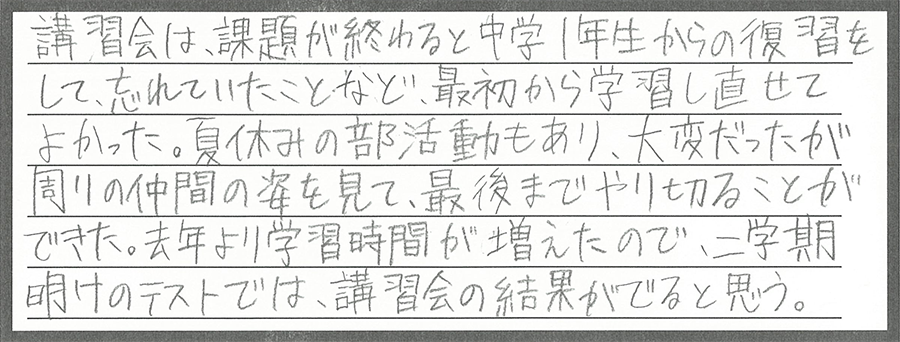 講習会は、課題が終わると中学1年生からの復習を
して、忘れていたことなど、最初から学習し直せて
よかった。夏休みの部活動もあり、大変だったが
周りの仲間の姿を見て、最後までやり切ることが
できた。去年より学習時間が増えたので、二学期
明けのテストでは、講習会の結果がでると思う。